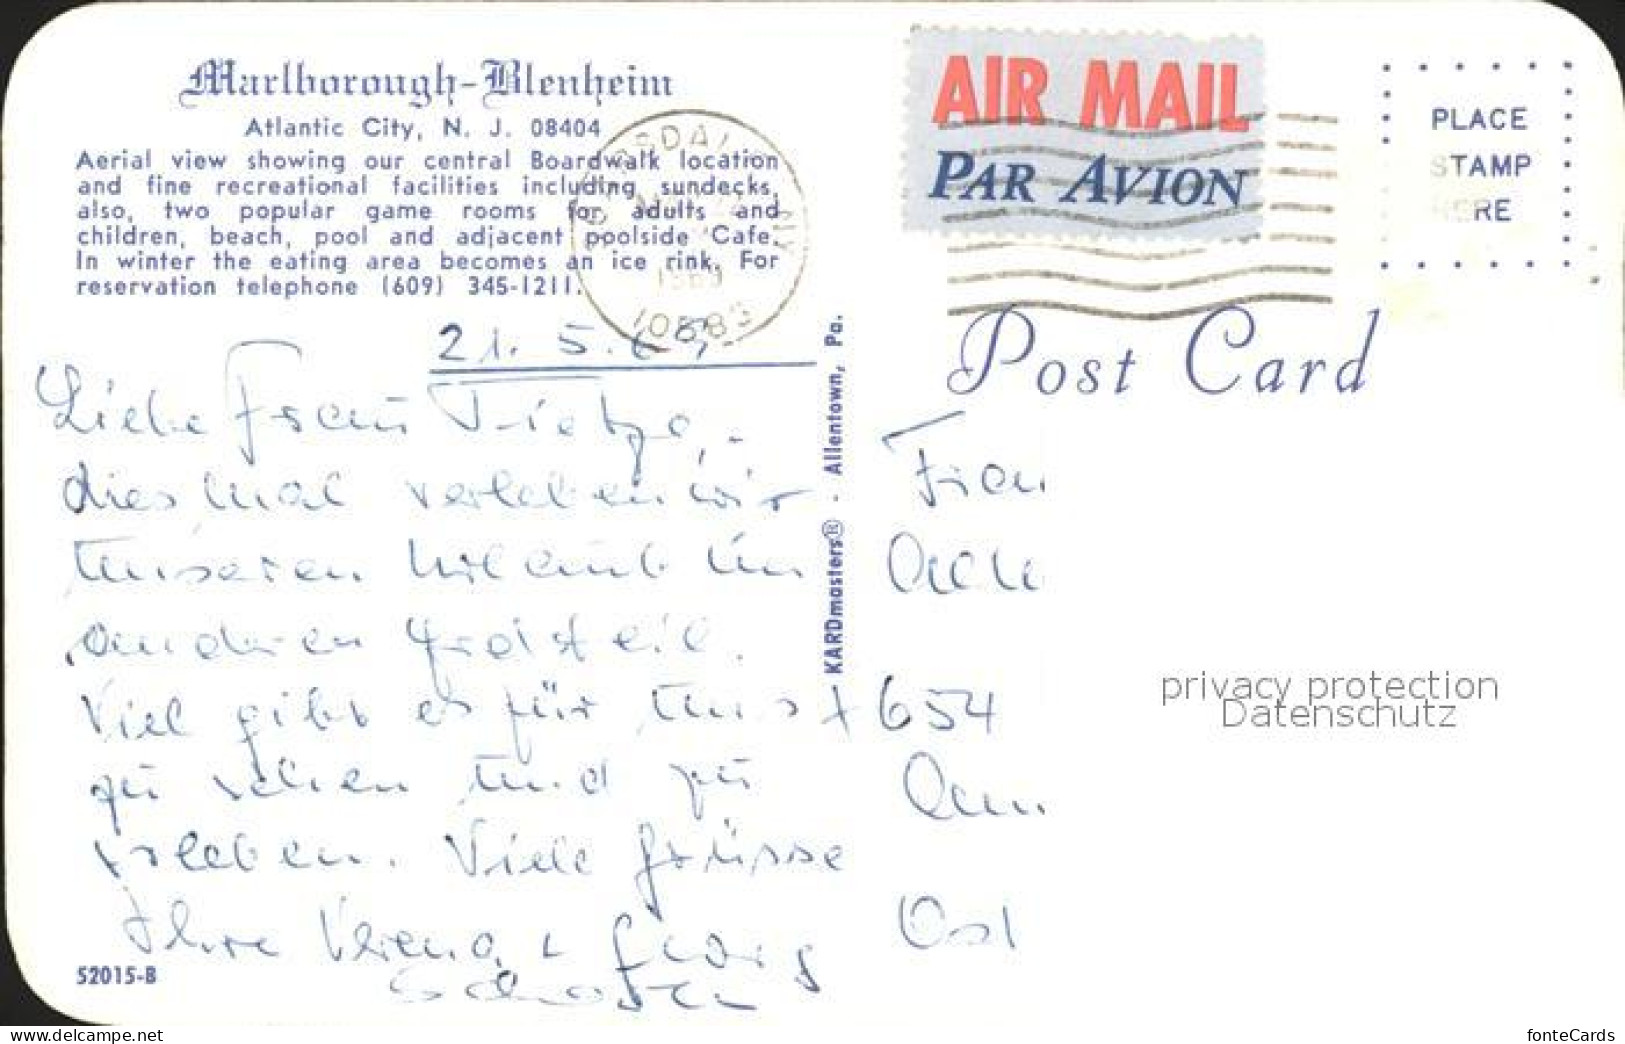 Marlborough-Blenheim
Atlantic City, N. J. 08404
Aerial view showing our central Boardwalk location
and fine recreational facilities including sundecks,
also, two popular game rooms for adults and
children, beach, pool and adjacent poolside Cafe.
In winter the eating area becomes an ice rink. For
reservation telephone (609) 345-1211.
10583
AIR MAIL
PAR AVION
PLACE
STAMP
HERE
Post Card
21. 5. 69
Liebe Frau Tietze,-
diesmal verleben wir
unseren Urlaub im
anderen Erdteil.
Viel gibt es für uns
zu sehen und zu
erleben. Viele Grüsse
Ihre Verena + Georg
52015-B
KARDmasters® - Allentown, Pa.
Frau
654
Ost
privacy protection
Datenschutz
www.delcampe.net
fonteCards